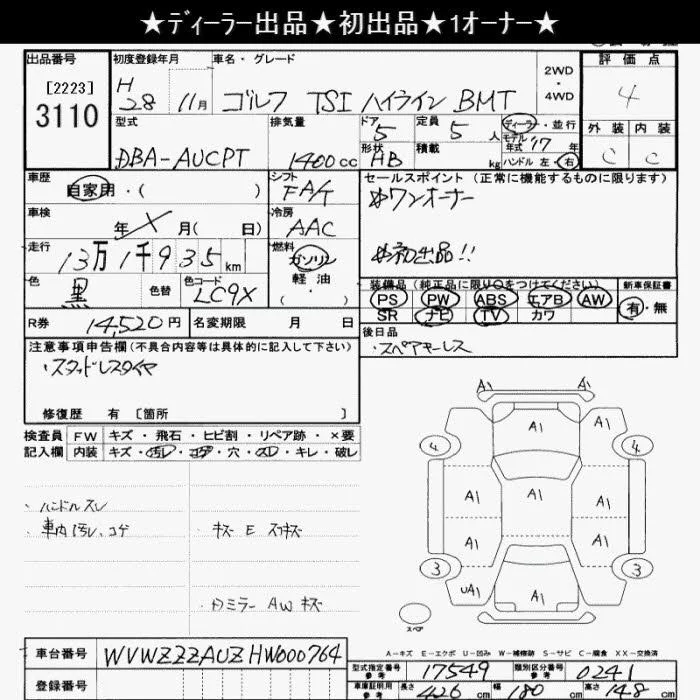 ★ディーラー出品★初出品★1オーナー★
出品番号 初度登録年月 車名・グレード 2WD ・ 4WD 評価点
[2223]
3110
H 28 11月 ゴルフ TSI ハイライン BMT 4
型式 排気量 ドア 定員 ディーラー・並行 外装 内装
DBA-AUCPT 1400cc 5 5人 モデル年式 '17年 C C
形状 HB 積載 kg ハンドル 左・右
車歴 自家用・( ) シフト FA/T セールスポイント (正常に機能するものに限ります)
ワンオーナー
車検 年 X 月( 日) 冷房 AAC
初出品!!
走行 13万1千935km 燃料 ガソリン 軽油 ・ ( )
色 黒 色替 色コード LC9X
装備品(純正品に限り○をつけてください) 新車保証書
PS PW ABS エアB AW 有・無
SR ナビ TV カワ
R券 14,520円 名変期限 月 日
後日品
・スペアキーレス
注意事項申告欄(不具合内容等は具体的に記入して下さい)
・スタッドレスタイヤ
修復歴 有 〔箇所 〕
検査員 FW キズ・飛石・ヒビ割・リペア跡・×要
記入欄 内装 キズ・汚レ・コゲ・穴・スレ・キレ・破レ
・ハンドルスレ
・車内汚レ、コゲ ・キズ E スリキズ
・ミラー AW キズ
A1 A1
A1
4 4
A1 A1 A1
A1 A1
3 3
uA1 A1 A1
スペア
A-キズ E-エクボ U-凹み W-補修跡 S-サビ C-腐食 XX-交換済
車台番号 WVWZZZAUZHW000764
型式指定番号 参考 17549 類別区分番号 参考 0241
登録番号
車庫証明用 参考 長さ 426cm 幅 180cm 高さ 148cm